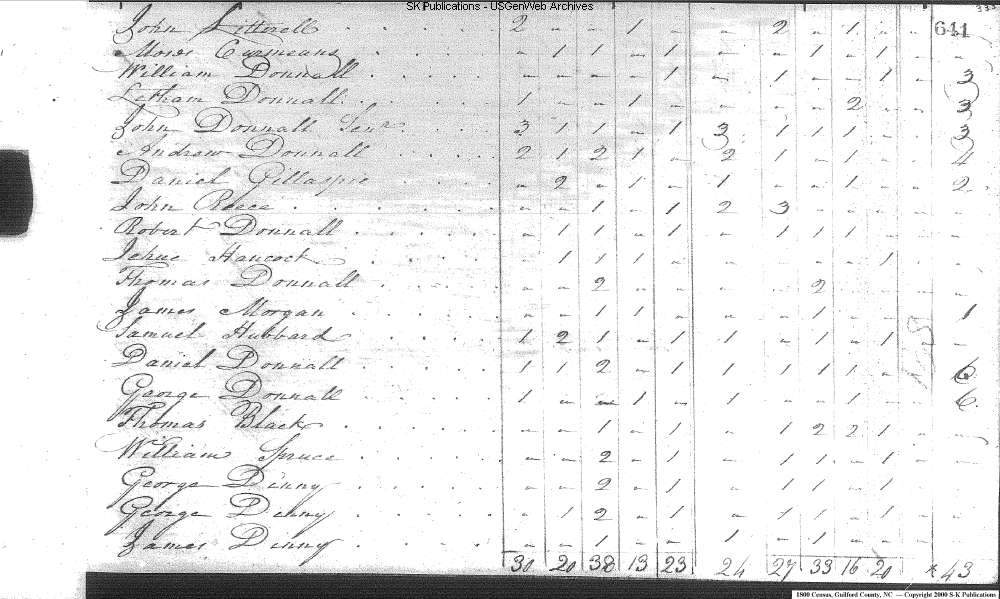 SK Publications - USGenWeb Archives
John Littrell 2 - - 1 - - 2 - 1 - - 641
Moses - 1 1 - 1 - - 1 - 1 -
William Donnall - - - - 1 - 1 - - 1 - 3
Letham Donnall 1 - - 1 - - - - 2 - - 3
John Donnall Senr 3 1 1 - 1 3 1 1 1 - - 3
Andrew Donnall 2 1 2 1 - 2 1 - 1 - - 4
Daniel Gillaspie - 2 - 1 - 1 - - 1 - - 2
John Reece - - 1 - 1 2 3 - - - - -
Robert Donnall - 1 1 - 1 - 1 1 1 - - -
Jehue Hancock - 1 1 1 - - - - - 1 -
Thomas Donnall - - 2 - - - - 2 - - - -
James Morgan - - 1 1 - - - 1 - - - 1
Samuel Hubbard 1 2 1 - 1 1 - 1 - 1 -
Daniel Donnall 1 1 2 - 1 1 1 1 1 - 6
George Donnall 1 - - 1 - 1 - - 1 - 6
Thomas Black - - 1 - 1 - 1 2 2 1 -
William Spruce - - 2 - 1 - 1 1 - 1 - -
George Denny - - 2 - 1 - 1 1 - 1 -
George Denny - 1 2 - 1 - 1 1 - 1 - -
James Denny - - 1 - - 1 - 1 - - - -
30 20 38 13 23 24 27 33 16 20 * 43
1800 Census, Guilford County, NC — Copyright 2000 S-K Publications